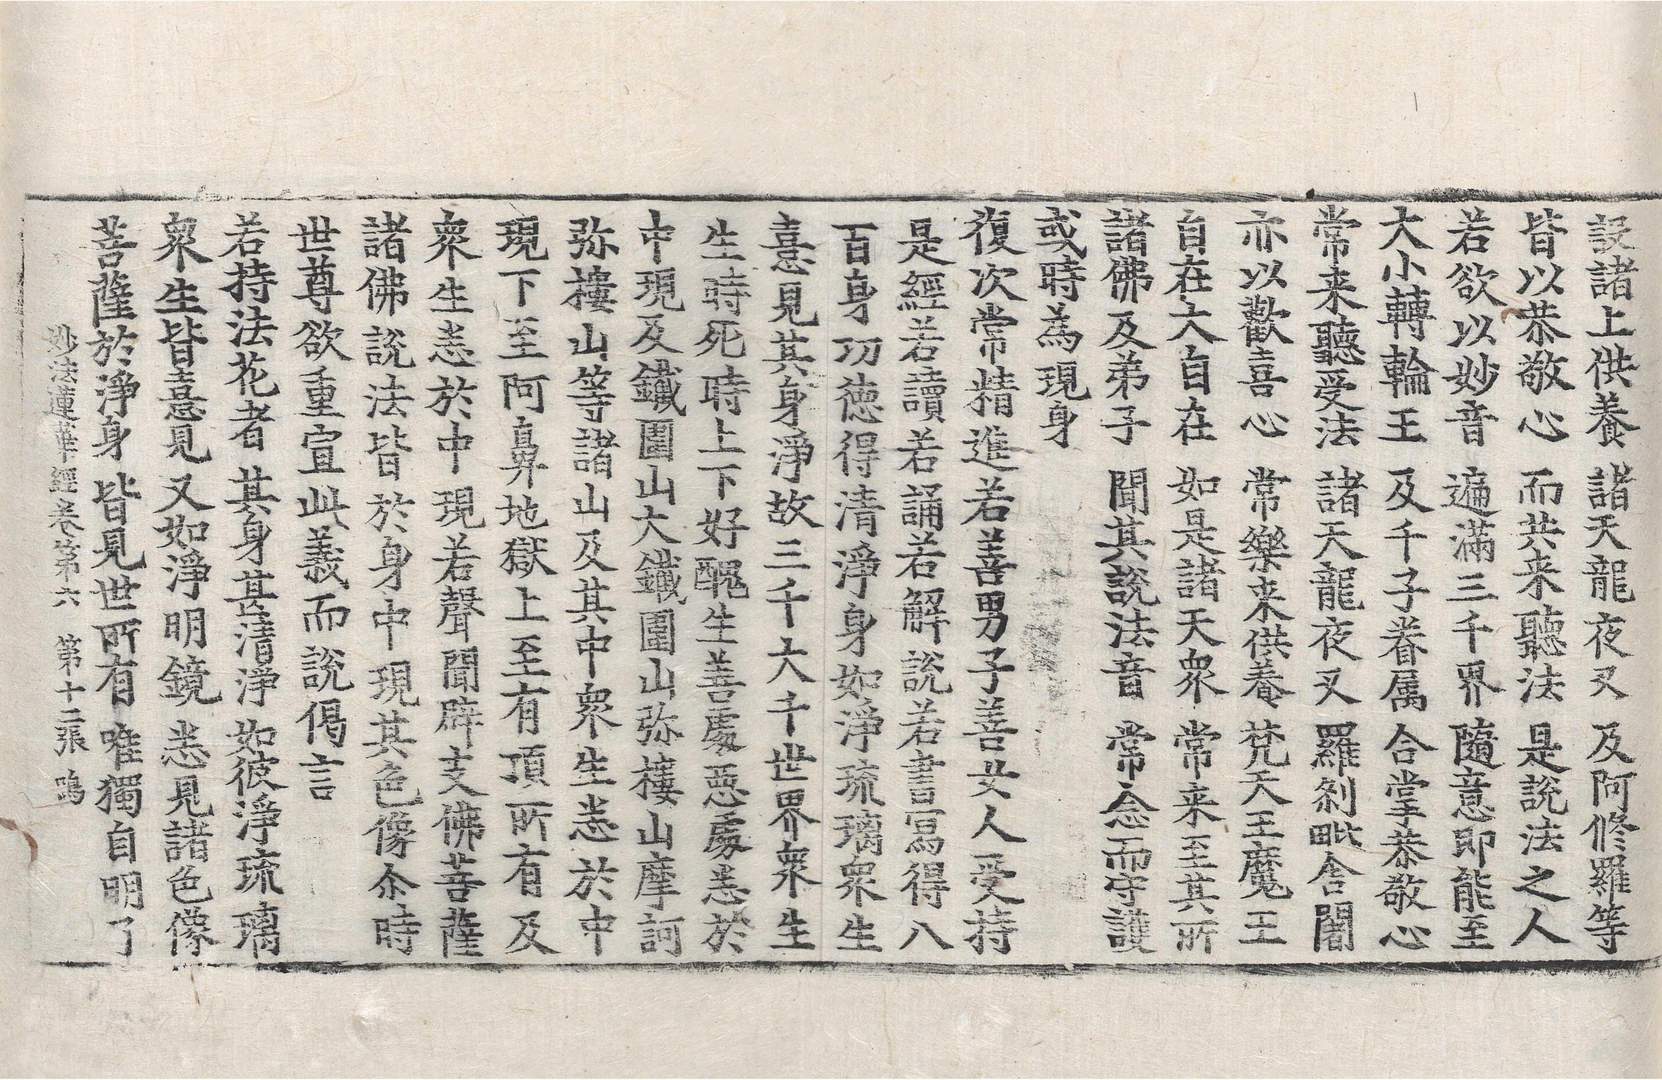 設諸上供養　諸天龍夜叉　及阿修羅等
皆以恭敬心　而共来聽法　是說法之人
若欲以妙音　遍滿三千界　隨意即能至
大小轉輪王　及千子眷属　合掌恭敬心
常来聽受法　諸天龍夜叉　羅剎毗舍闍
亦以歡喜心　常樂来供養　梵天王魔王
自在大自在　如是諸天衆　常来至其所
諸佛及弟子　聞其說法音　常念而守護
或時為現身
復次常精進若善男子善女人受持
是經若讀若誦若解說若書寫得八
百身功徳得清淨身如淨琉璃衆生
憙見其身淨故三千大千世界衆生
生時死時上下好醜生善處惡處悉於
中現及鐵圍山大鐵圍山弥樓山摩訶
弥樓山等諸山及其中衆生悉於中
現下至阿鼻地獄上至有頂所有及
衆生悉於中現若聲聞辟支佛菩薩
諸佛說法皆於身中現其色像尒時
世尊欲重宣此義而說偈言
若持法花者　其身甚清淨　如彼淨琉璃
衆生皆憙見　又如淨明鏡　悉見諸色像
菩薩於淨身　皆見世所有　唯獨自明了
妙法蓮華經卷第六　第十二張　鳴